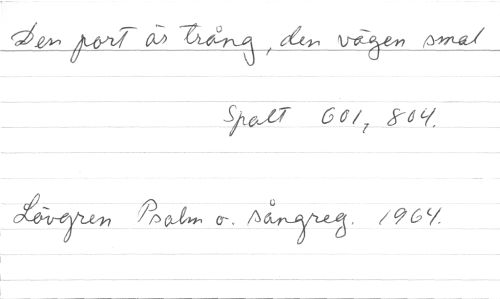 Den port är trång, den vägen smal
Spalt 601, 804.
Lövgren Psalm o. sångreg. 1964.